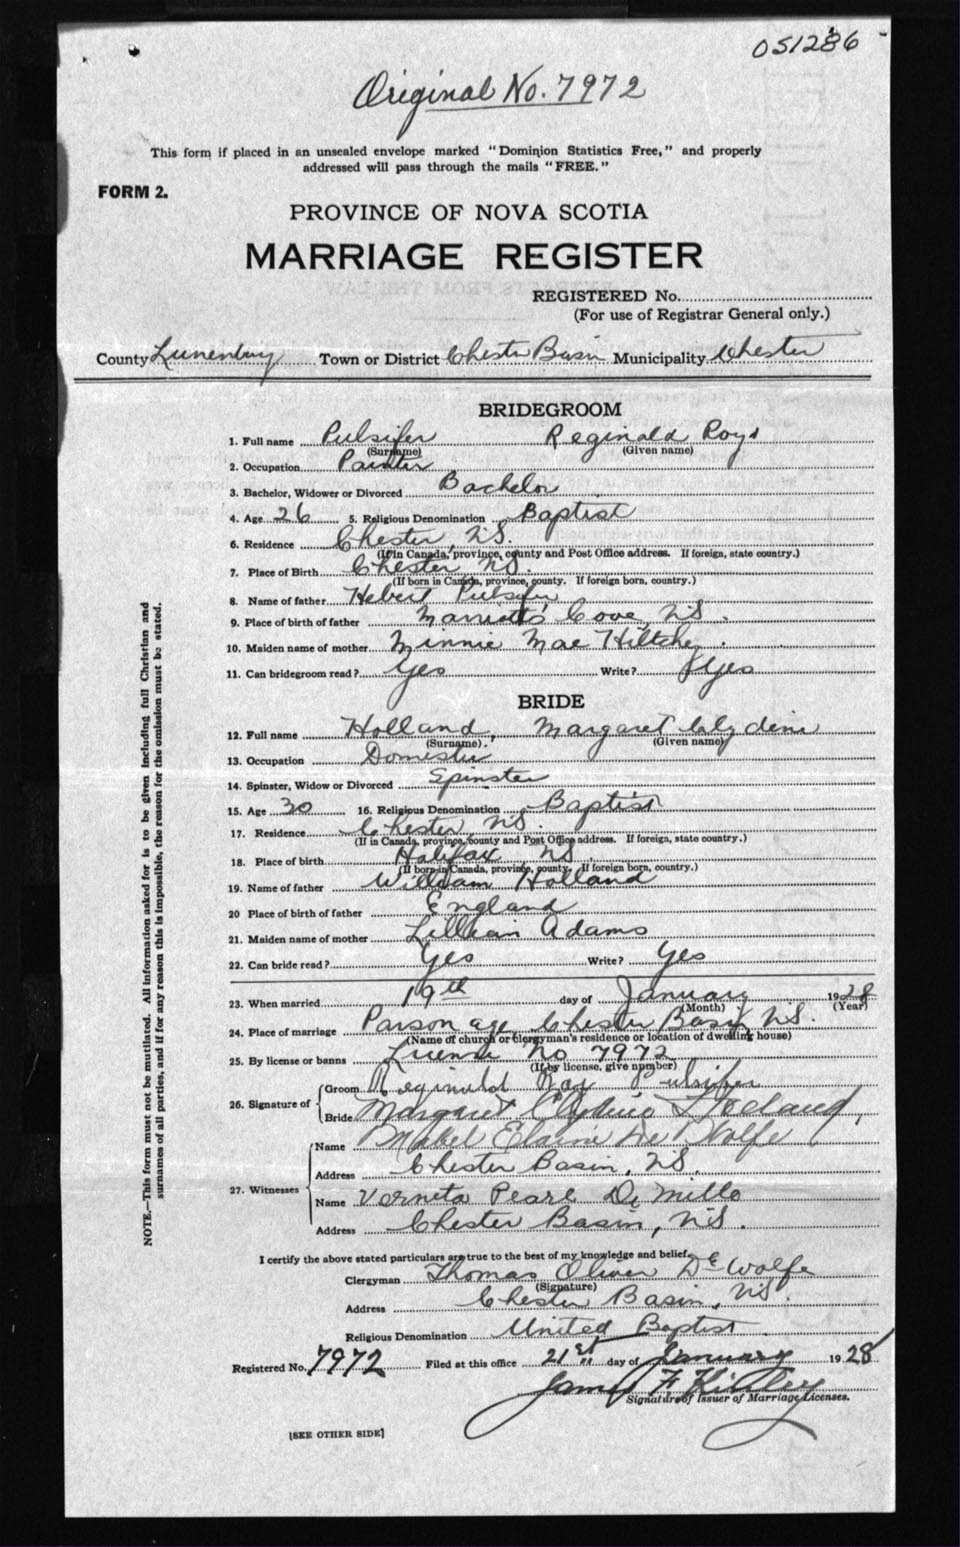 051286
Original No. 7972
This form if placed in an unsealed envelope marked "Dominion Statistics Free," and properly
addressed will pass through the mails "FREE."
FORM 2.
PROVINCE OF NOVA SCOTIA
MARRIAGE REGISTER
REGISTERED No.
(For use of Registrar General only.)
County Lunenburg Town or District Chester Basin Municipality Chester
BRIDEGROOM
1. Full name Pulsifer Reginald Roys
(Surname) (Given name)
2. Occupation Painter
3. Bachelor, Widower or Divorced Bachelor
4. Age 26 5. Religious Denomination Baptist
6. Residence Chester N.S.
(If in Canada, province, county and Post Office address. If foreign, state country.)
7. Place of Birth Chester N.S.
(If born in Canada, province, county. If foreign born, country.)
8. Name of father Hebert Pulsifer
9. Place of birth of father Marriotts Cove, N.S.
10. Maiden name of mother Minnie Mae Hiltchy
11. Can bridegroom read? Yes Write? Yes
BRIDE
12. Full name Holland, Margaret Clydine
(Surname). (Given name)
13. Occupation Domestic
14. Spinster, Widow or Divorced Spinster
15. Age 30 16. Religious Denomination Baptist
17. Residence Chester N.S.
(If in Canada, province, county and Post Office address. If foreign, state country.)
18. Place of birth Halifax N.S.
(If born in Canada, province, county. If foreign born, country.)
19. Name of father William Holland
20 Place of birth of father England
21. Maiden name of mother Lillian Adams
22. Can bride read? Yes Write? Yes
23. When married 19th day of January 1928
(Month) (Year)
24. Place of marriage Parsonage, Chester Basin, N.S.
(Name of church or clergyman's residence or location of dwelling house)
25. By license or banns License No 7972
(If by license, give number)
26. Signature of Groom Reginald Roy Pulsifer
Bride Margaret Clydine Holland
27. Witnesses Name Mabel Elaine De Wolfe
Address Chester Basin, N.S.
Name Verneta Pearl De Mille
Address Chester Basin, N.S.
I certify the above stated particulars are true to the best of my knowledge and belief.
Clergyman Thomas Oliver De Wolfe
(Signature)
Address Chester Basin, N.S.
Religious Denomination United Baptist
Registered No. 7972 Filed at this office 21st day of January 1928
James F.
Signature of Issuer of Marriage Licenses.
[SEE OTHER SIDE]
NOTE.—This form must not be mutilated. All information asked for is to be given including full Christian and
surnames of all parties, and if for any reason this is impossible, the reason for the omission must be stated.